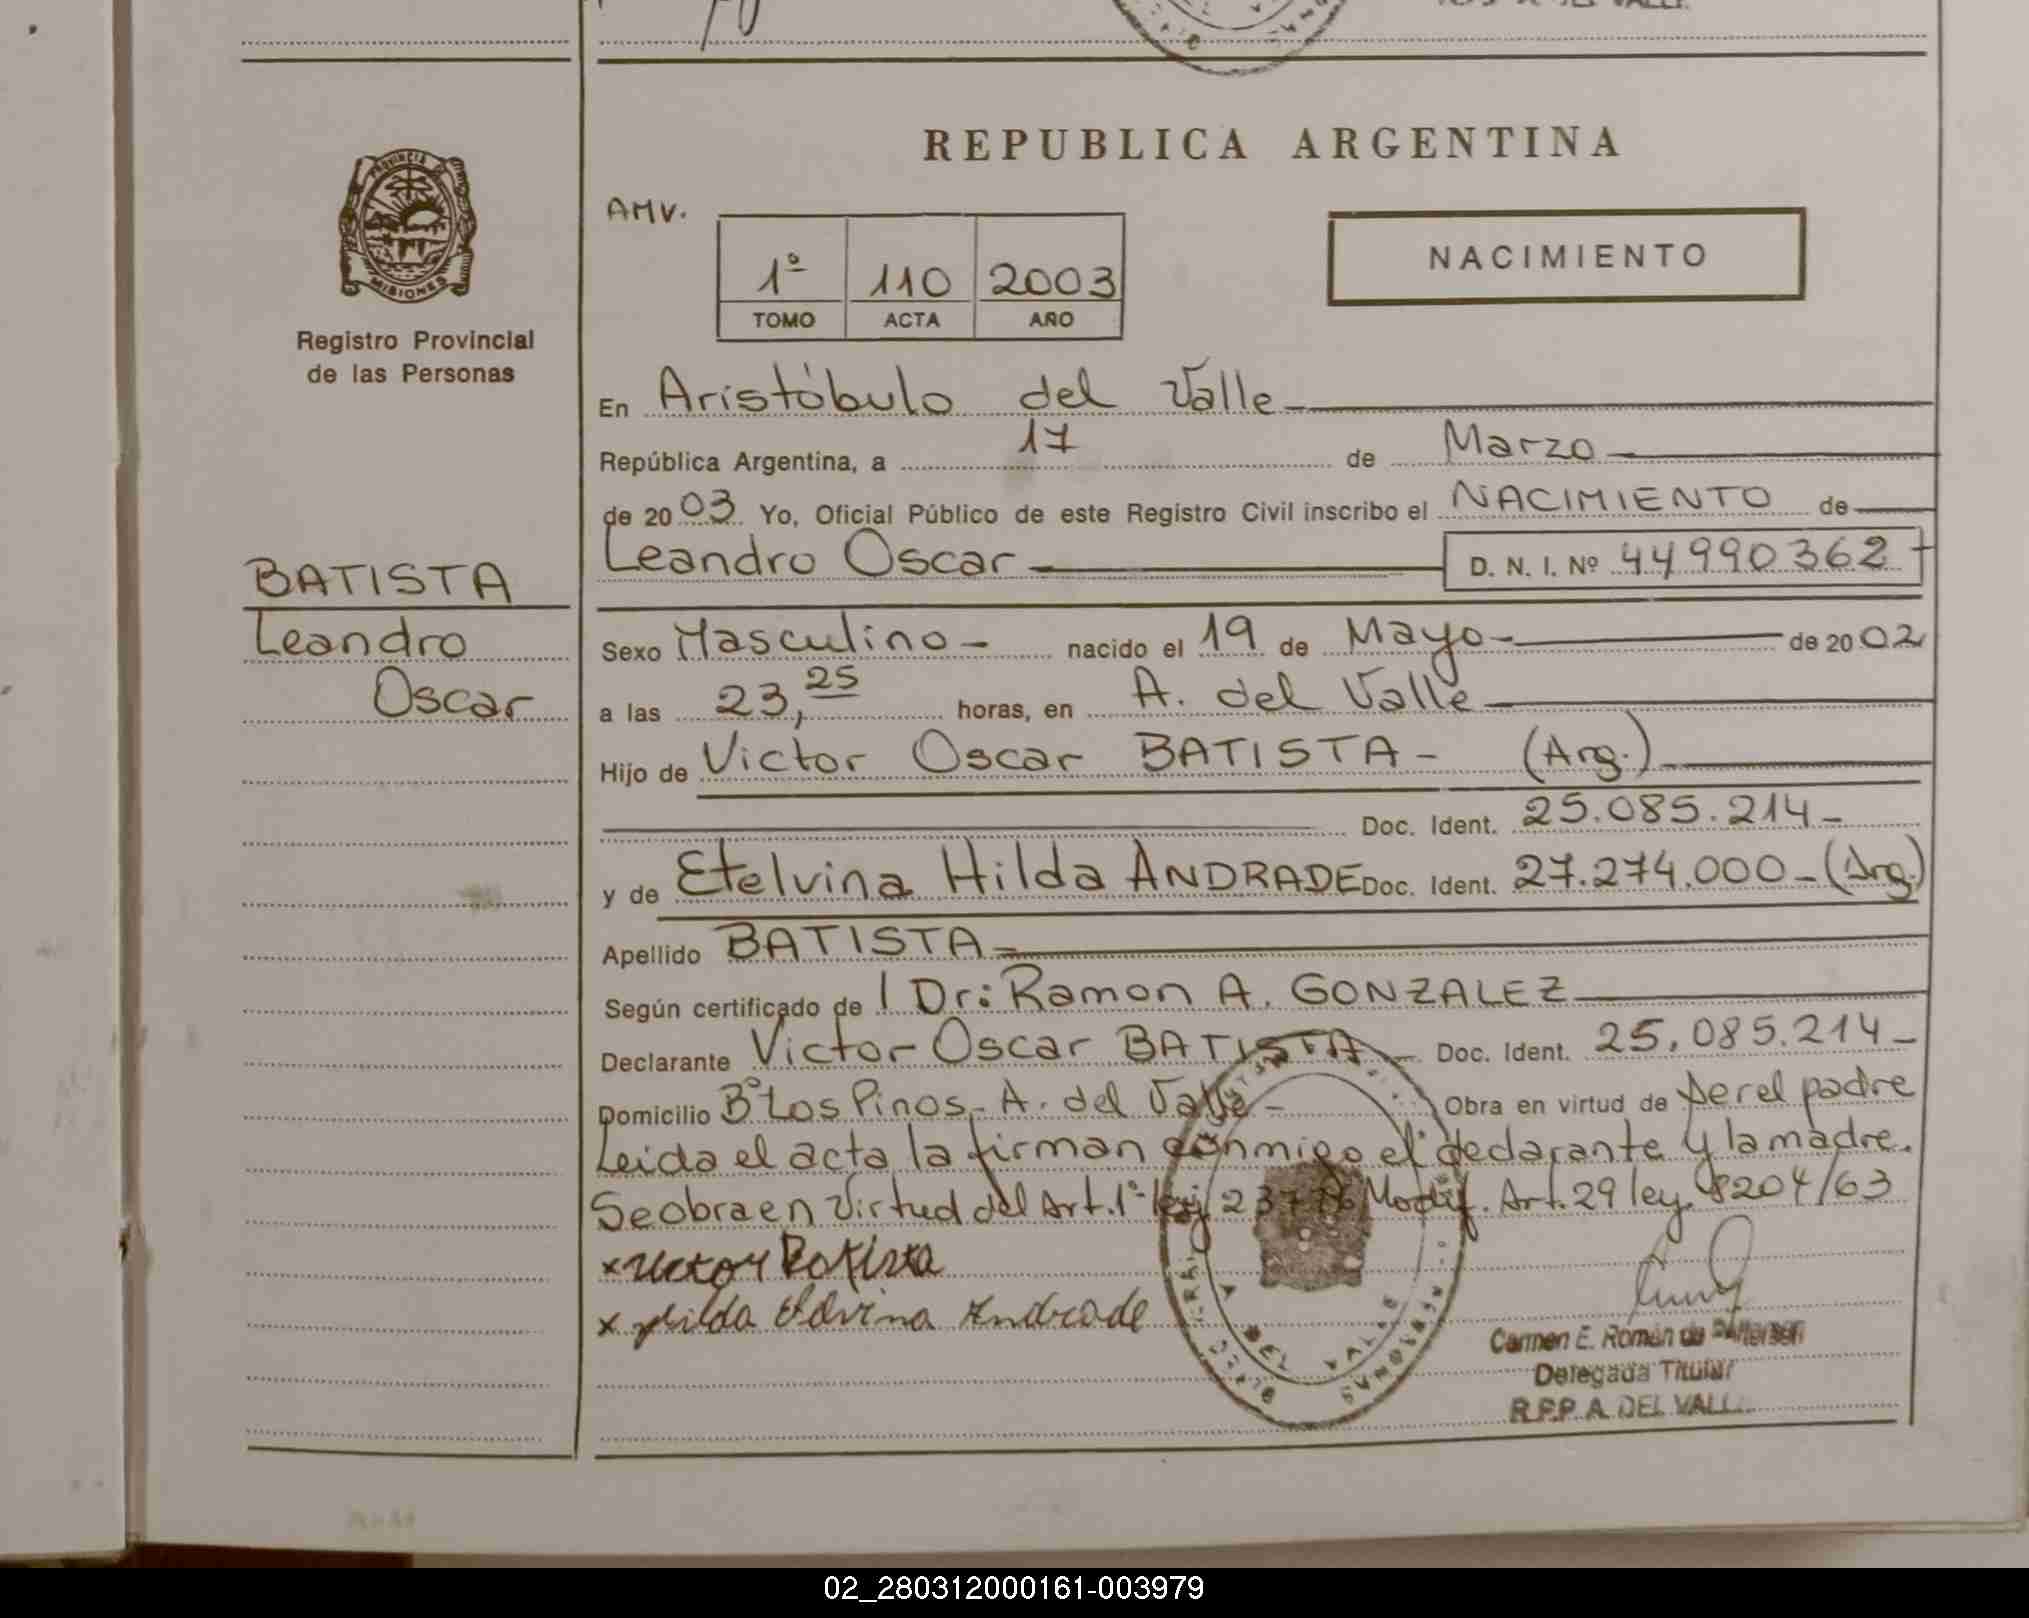 REPUBLICA ARGENTINA
PROVINCIA DE
MISIONES
Registro Provincial
de las Personas
AMV.
1º 110 2003
TOMO ACTA AÑO
NACIMIENTO
En Aristóbulo del Valle
República Argentina, a 17 de Marzo
de 2003 Yo, Oficial Público de este Registro Civil inscribo el NACIMIENTO de
Leandro Oscar D. N. I. Nº 44990362
BATISTA
Leandro
Oscar
Sexo Masculino - nacido el 19 de Mayo - de 2002
a las 23,25 horas, en A. del Valle
Hijo de Victor Oscar BATISTA - (Arg.)
Doc. Ident. 25.085.214 -
y de Etelvina Hilda ANDRADE Doc. Ident. 27.274.000 - (Arg.)
Apellido BATISTA
Según certificado de l Dr: Ramon A. GONZALEZ
Declarante Victor Oscar BATISTA Doc. Ident. 25.085.214 -
Domicilio Bº Los Pinos - A. del Valle - Obra en virtud de ser el padre
Leida el acta la firman conmigo el declarante y la madre.
Se obra en virtud del Art. 1º ley 23776 Modif. Art. 29 ley 8204/63
x Victor Batista
x Hilda Andrade
Carmen E. Román de
Delegada Titular
R.P.P. A. DEL VALL
02_280312000161-003979